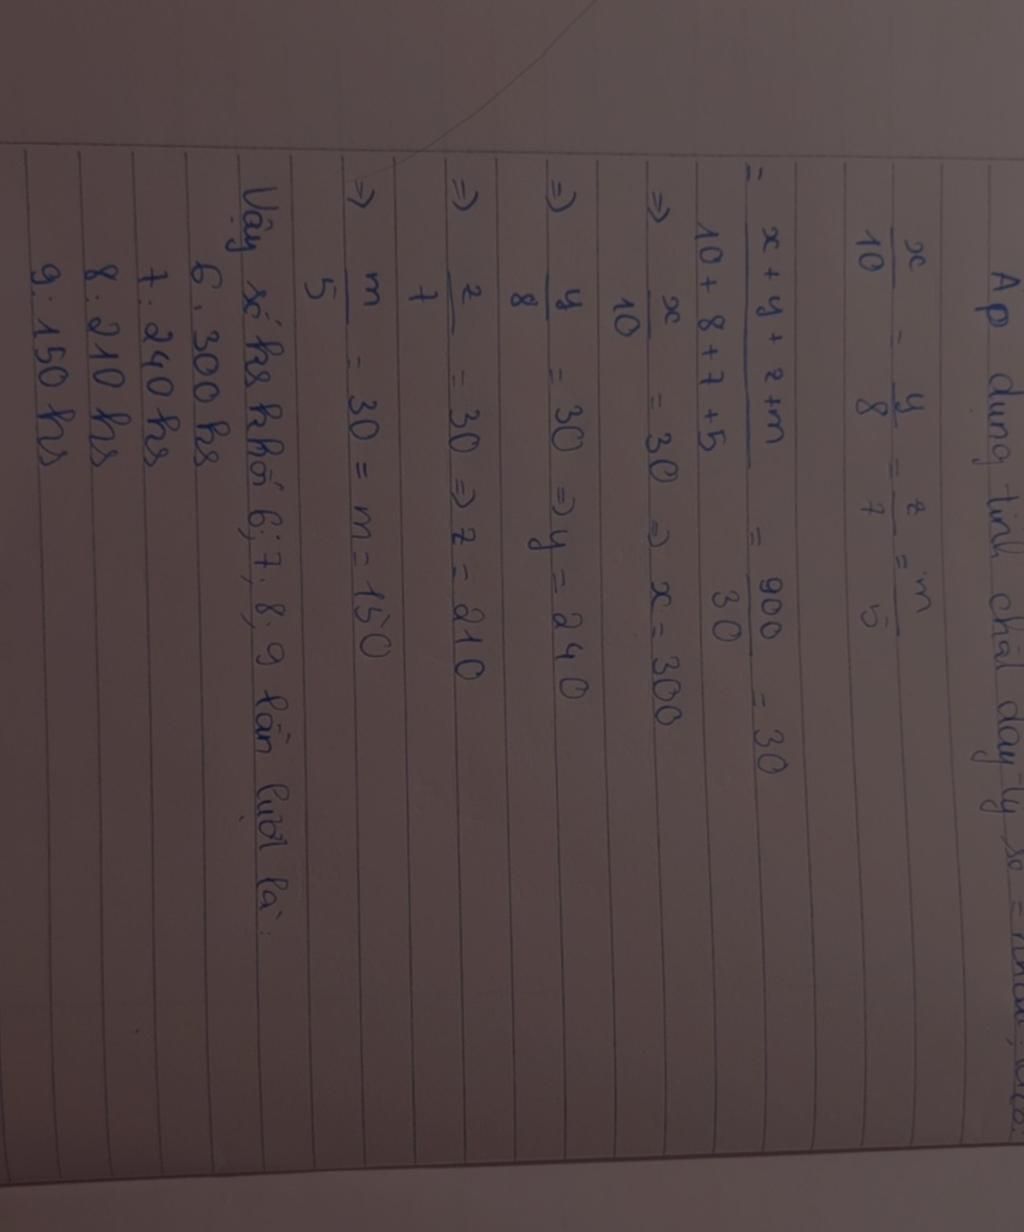 Áp dụng tính chất dãy tỷ số = nhau, ta có:
x/10 = y/8 = z/7 = m/5
= x + y + z + m / 10 + 8 + 7 + 5 = 900/30 = 30
=> x/10 = 30 => x = 300
=> y/8 = 30 => y = 240
=> z/7 = 30 => z = 210
=> m/5 = 30 = m = 150
Vậy số hs khối 6; 7, 8, 9 lần lượt là:
6. 300 hs
7: 240 hs
8: 210 hs
9: 150 hs